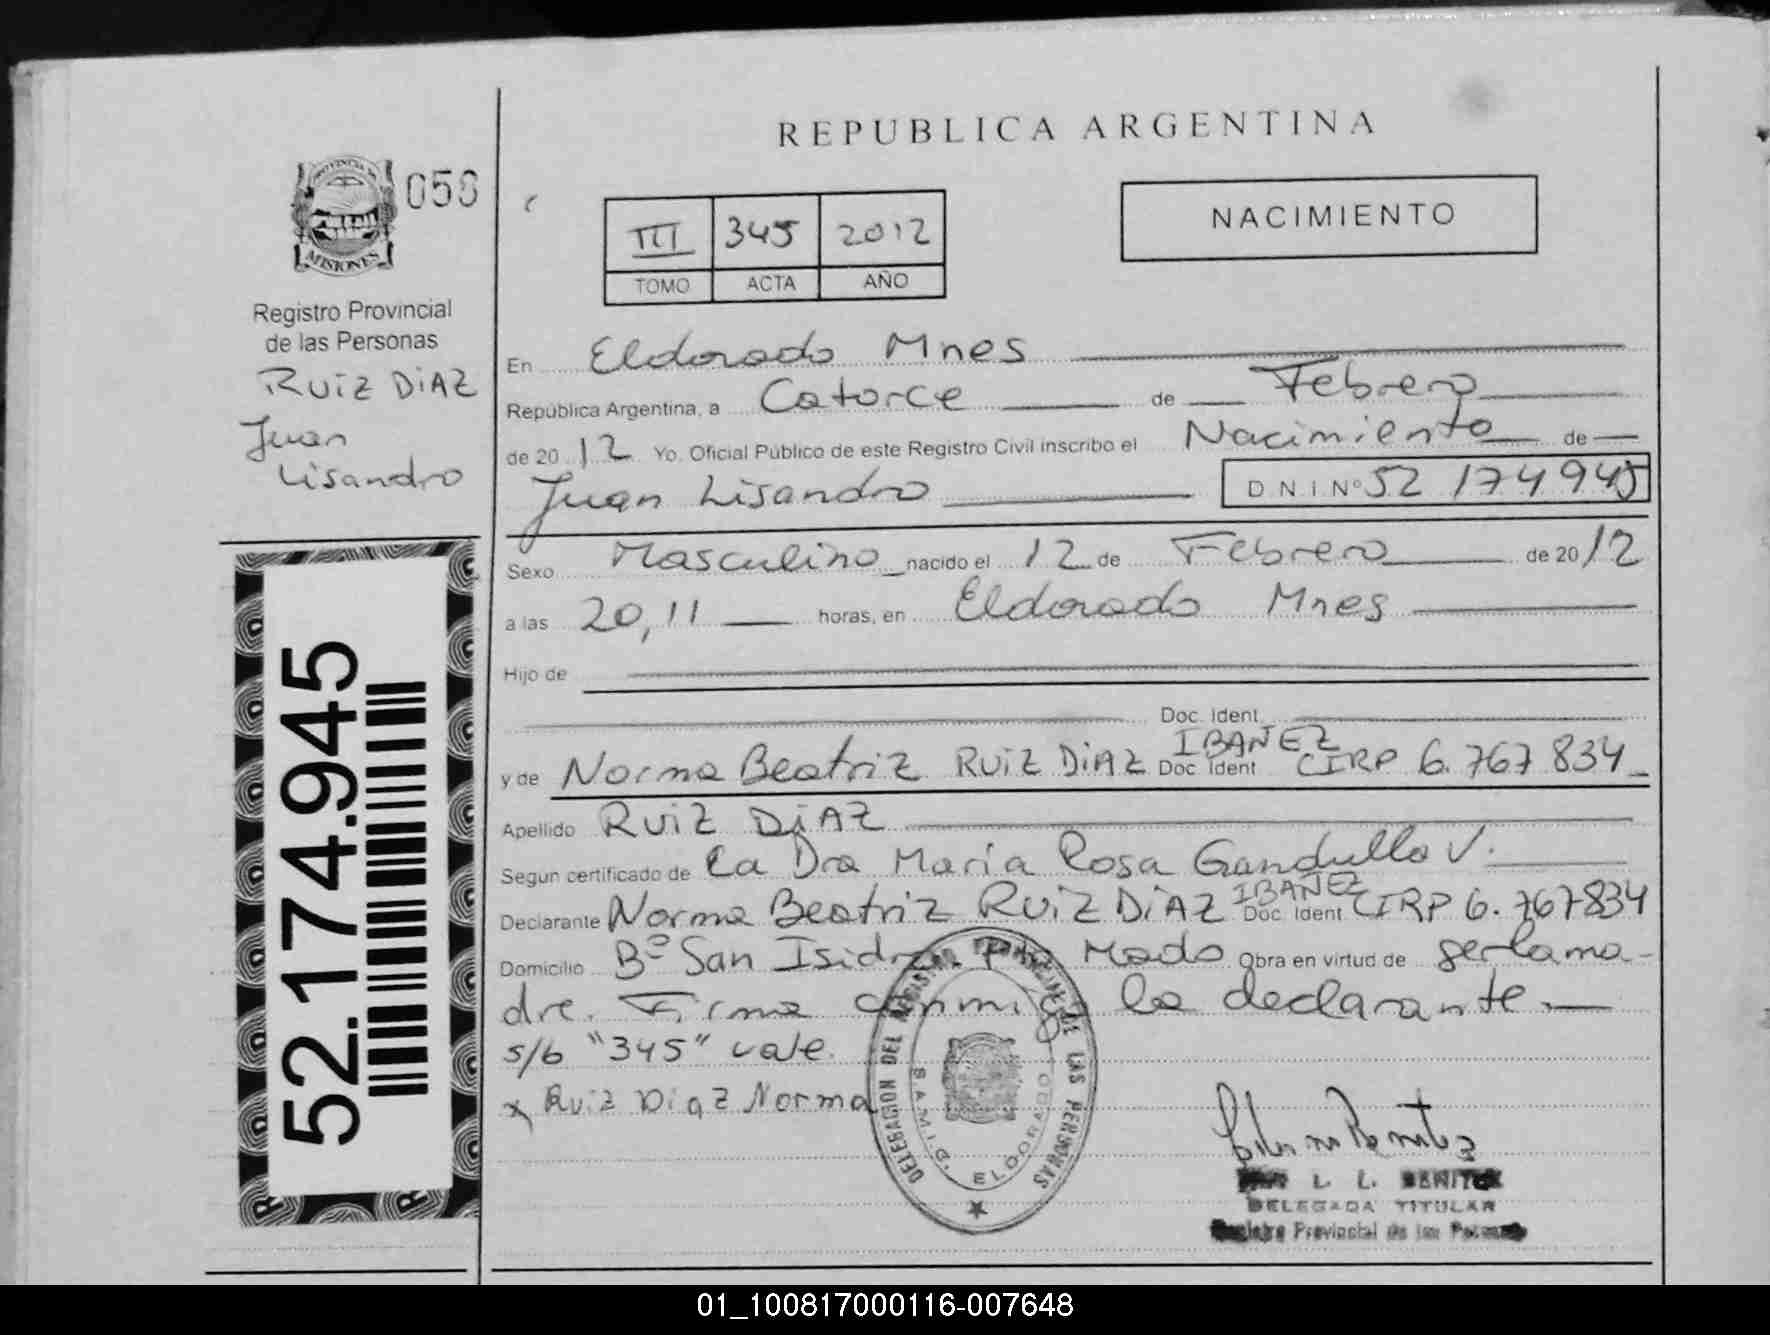 REPUBLICA ARGENTINA
PROVINCIA DE
MISIONES
Registro Provincial
de las Personas
RUIZ DIAZ
Juan
Lisandro
52.174.945
III 345 2012
TOMO ACTA AÑO
NACIMIENTO
En Eldorado Mnes
República Argentina, a Catorce de Febrero
de 2012 Yo. Oficial Público de este Registro Civil inscribo el Nacimiento de
Juan Lisandro D.N.I. Nº 52 174945
Sexo Masculino nacido el 12 de Febrero de 2012
a las 20,11 horas, en Eldorado Mnes
Hijo de
Doc. Ident.
IBAÑEZ
y de Norma Beatriz RUIZ DIAZ Doc Ident CIRP 6.767 834
Apellido RUIZ DIAZ
Segun certificado de La Dra Maria Rosa Gandulla V.
IBAÑEZ
Declarante Norma Beatriz RUIZ DIAZ Doc. Ident CIRP 6.767834
Domicilio Bº San Isidro Pto Mado Obra en virtud de ser la ma-
dre. Firma conmigo la declarante.
s/b "345" vale.
x Ruiz Diaz Norma
DELEGACION DEL REGISTRO PROVINCIAL DE LAS PERSONAS
S.A.M.I.C. ELDORADO
L. L. BENITEZ
DELEGADA TITULAR
Registro Provincial de las Personas
01_100817000116-007648